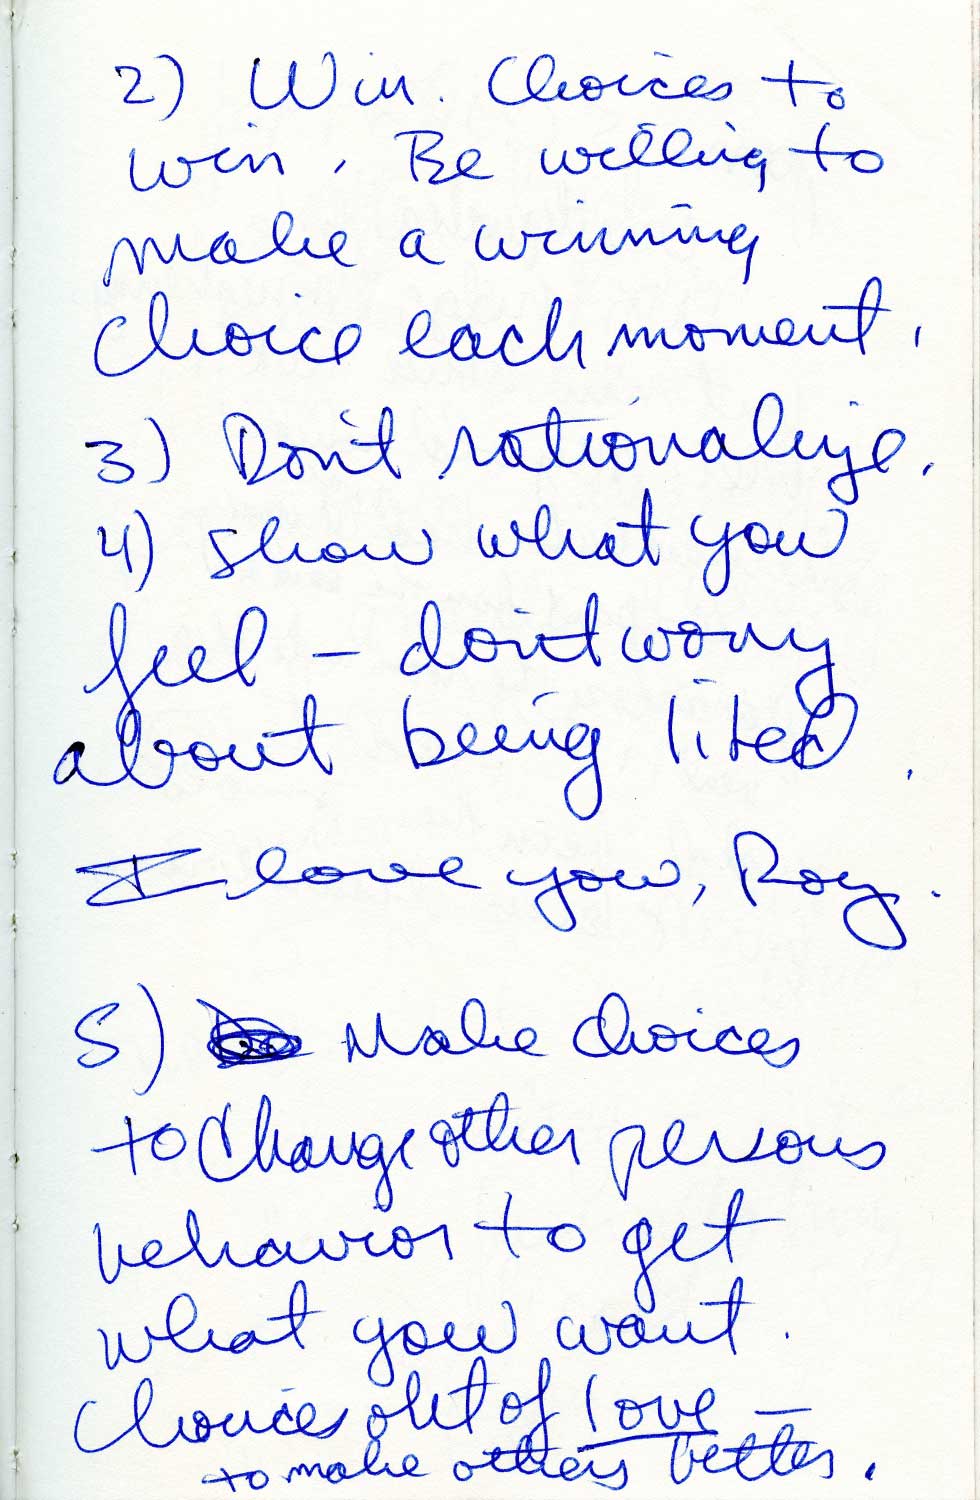 2) Win. Choices to
win. Be willing to
make a winning
choice each moment.
3) Don't rationalize.
4) Show what you
feel – don't worry
about being liked.
I love you, Roy.
5) Make choices
to change other persons
behavior to get
what you want.
Choices out of love –
to make others better.